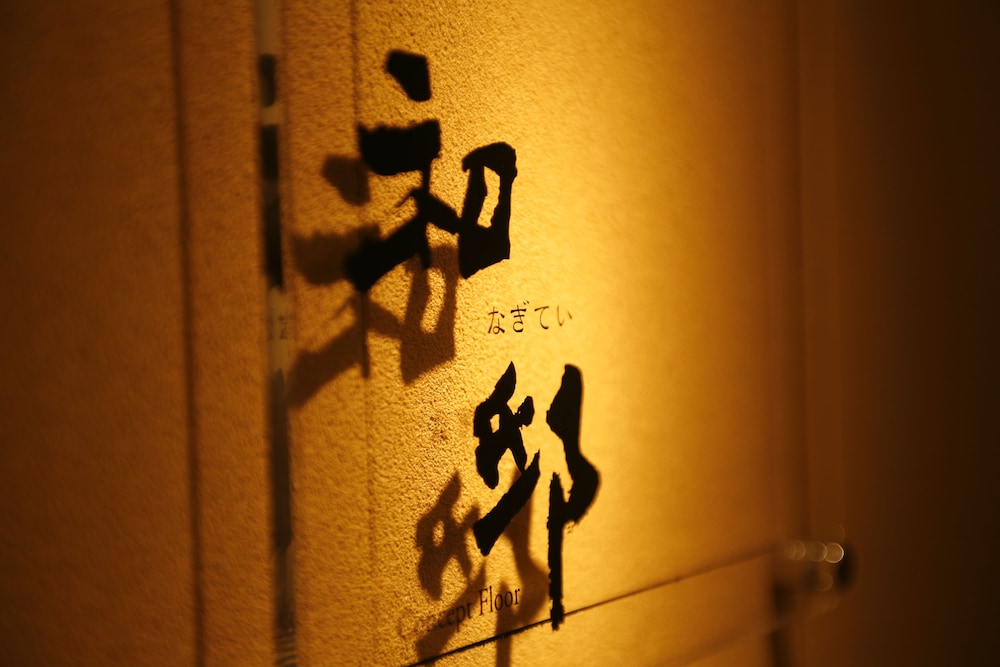 和
なぎてい
邸
Concept Floor